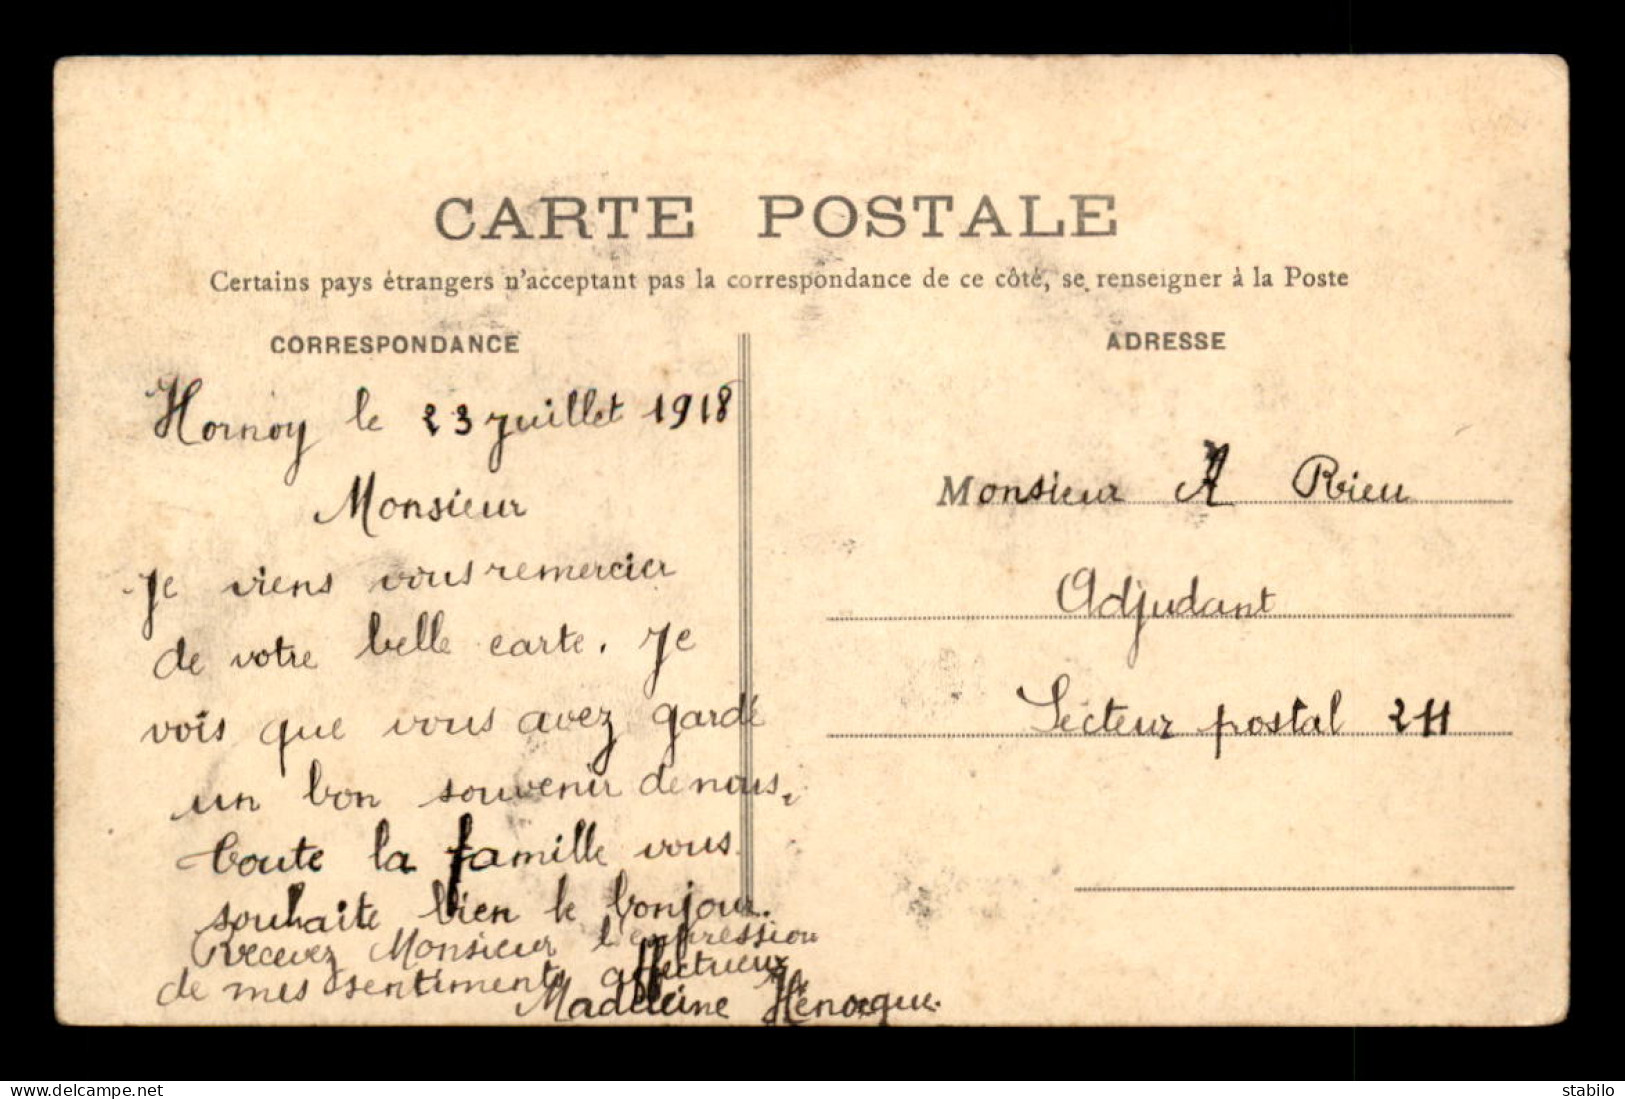 CARTE POSTALE
Certains pays étrangers n'acceptant pas la correspondance de ce côté, se renseigner à la Poste
CORRESPONDANCE
Hornoy le 23 juillet 1918
Monsieur
Je viens vous remercier
de votre belle carte. Je
vois que vous avez gardé
un bon souvenir de nous,
toute la famille vous
souhaite bien le bonjour.
Recevez Monsieur l'expression
de mes sentiments affectueux
Madeleine Hénocque.
ADRESSE
Monsieur A Rieu
Adjudant
Secteur postal 211
https://www.delcampe.net
stabilo